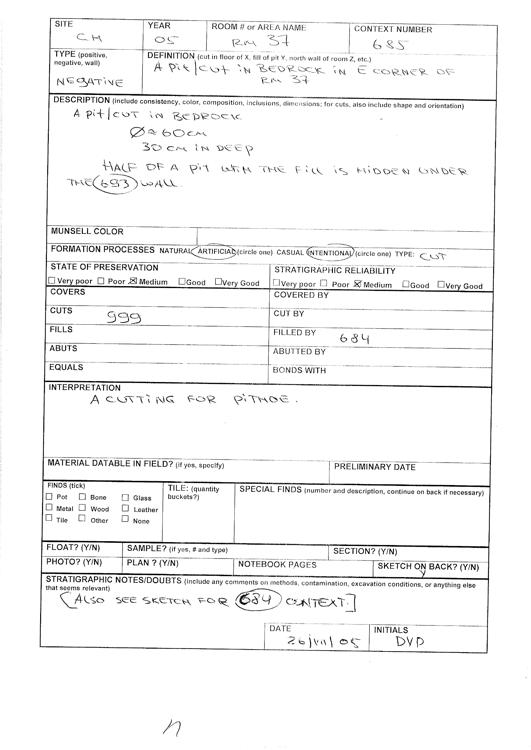 SITE YEAR ROOM # or AREA NAME CONTEXT NUMBER
CH 05 RM 37 685
TYPE (positive, negative, wall) DEFINITION (cut in floor of X, fill of pit Y, north wall of room Z, etc.)
NEGATIVE A PIT/CUT IN BEDROCK IN E CORNER OF
RM 37
DESCRIPTION (include consistency, color, composition, inclusions, dimensions; for cuts, also include shape and orientation)
A PIT/CUT IN BEDROCK
Ø ≈ 60 CM
30 CM IN DEEP
HALF OF A PIT WITH THE FILL IS HIDDEN UNDER
THE 693 WALL.
MUNSELL COLOR
FORMATION PROCESSES NATURAL ARTIFICIAL (circle one) CASUAL INTENTIONAL (circle one) TYPE: CUT
STATE OF PRESERVATION STRATIGRAPHIC RELIABILITY
☐Very poor ☐ Poor ☒Medium ☐Good ☐Very Good ☐Very poor ☐ Poor ☒ Medium ☐Good ☐Very Good
COVERS COVERED BY
CUTS 999 CUT BY
FILLS FILLED BY 684
ABUTS ABUTTED BY
EQUALS BONDS WITH
INTERPRETATION
A CUTTING FOR PITHOE.
MATERIAL DATABLE IN FIELD? (if yes, specify) PRELIMINARY DATE
FINDS (tick) TILE: (quantity buckets?) SPECIAL FINDS (number and description, continue on back if necessary)
☐ Pot ☐ Bone ☐ Glass
☐ Metal ☐ Wood ☐ Leather
☐ Tile ☐ Other ☐ None
FLOAT? (Y/N) SAMPLE? (if yes, # and type) SECTION? (Y/N)
PHOTO? (Y/N) PLAN ? (Y/N) NOTEBOOK PAGES SKETCH ON BACK? (Y/N)
Y
STRATIGRAPHIC NOTES/DOUBTS (Include any comments on methods, contamination, excavation conditions, or anything else
that seems relevant)
[ALSO SEE SKETCH FOR 684 CONTEXT.]
DATE INITIALS
26/VII/05 DVD